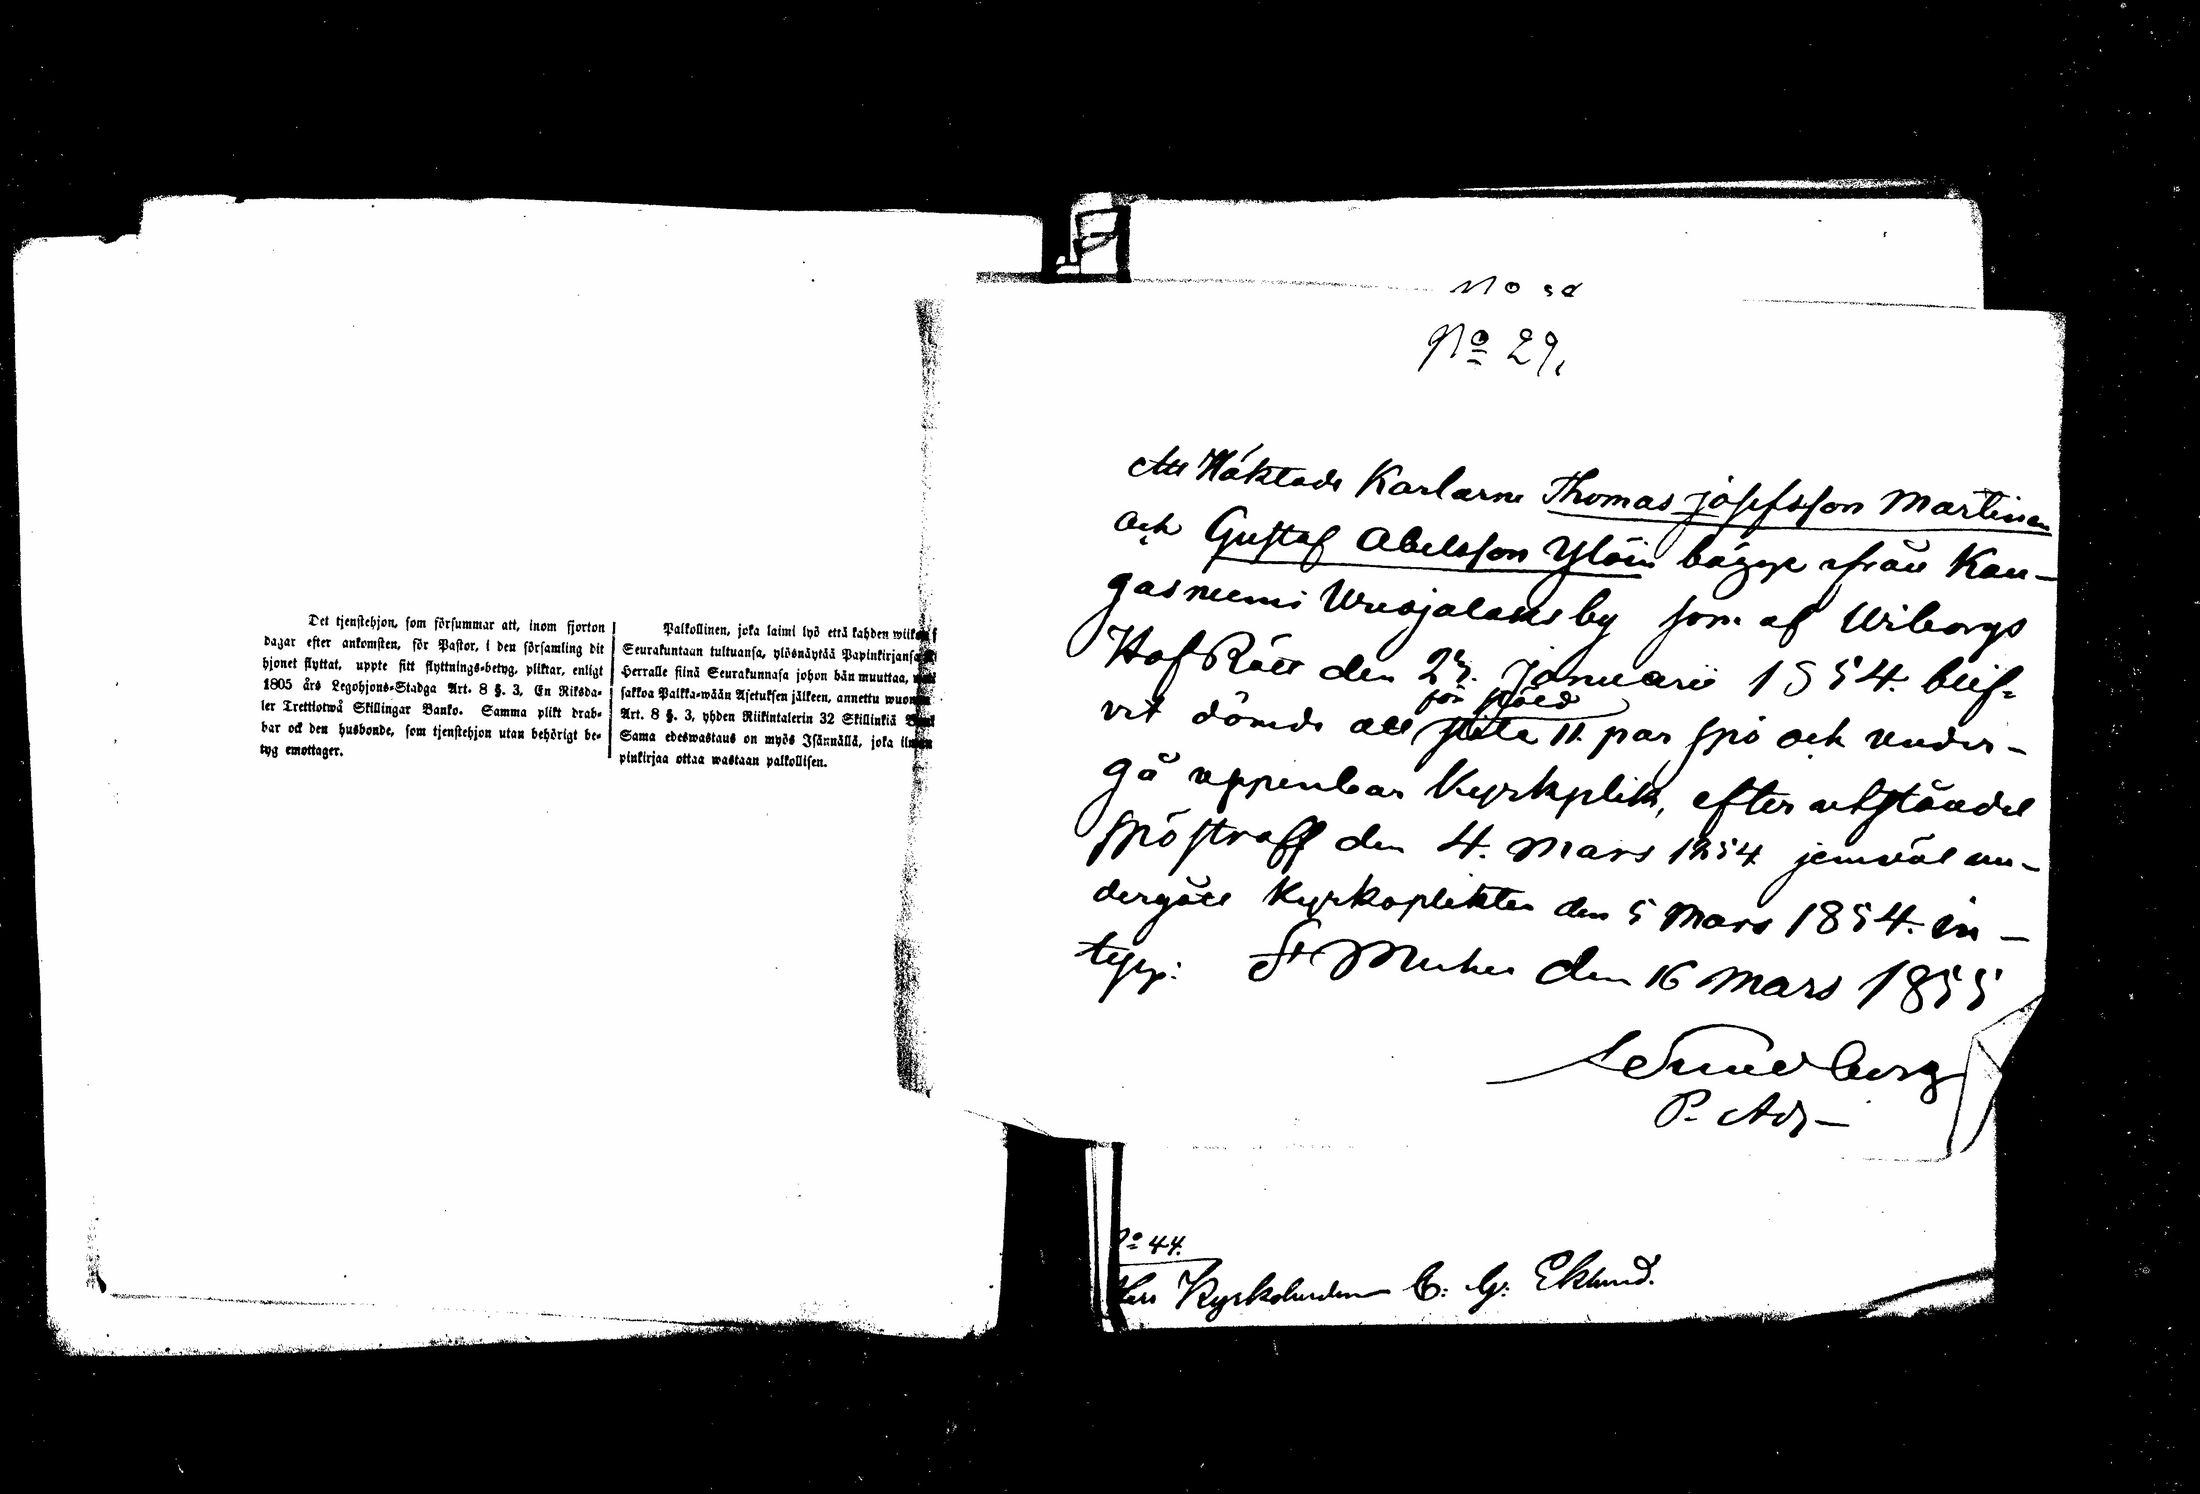 Det tjenstehjon, som försummar att, inom fjorton
dagar efter ankomsten, för Pastor, i den församling dit
hjonet flyttat, uppte sitt flyttnings-betyg, pliktar, enligt
1805 års Legohjons-Stadga Art. 8 §. 3, En Riksda-
ler Trettiotwå Skillingar Banko. Samma plikt drab-
bar ock den husbonde, som tjenstehjon utan behörigt be-
tyg emottager.
Palkollinen, joka laimi lyö että kahden
Seurakuntaan tultuansa, ylösnäytää Papinkirjansa
Herralle siinä Seurakunnasa johon hän muuttaa,
sakkoa Palkka-wään Asetuksen jälkeen, annettu
Art. 8 §. 3, yhden Riikintalerin 32 Skillinkiä
Sama edeswastaus on myös Isännällä, joka
pinkirjaa ottaa wastaan palkollisen.
No 29.
Att Häktade Karlarne Thomas Josefsson Martinen
och Gustaf Abelsson Ylöin bägge ifrån Kan-
gasniemi by som af Wiborgs
Hof Rätt den Januarii 1854. blif-
vit dömde att för stöld slita 11. par spö och under-
gå uppenbar Kyrkplikt, efter utståndet
spöstraff den 4. Mars 1854 jemväl un-
dergått Kyrkoplikten den 5 Mars 1854. in-
tygr. St Michel den 16 Mars 1855
P. Adj
No 44.
Herr Kyrkoherden C. G. Eklund.